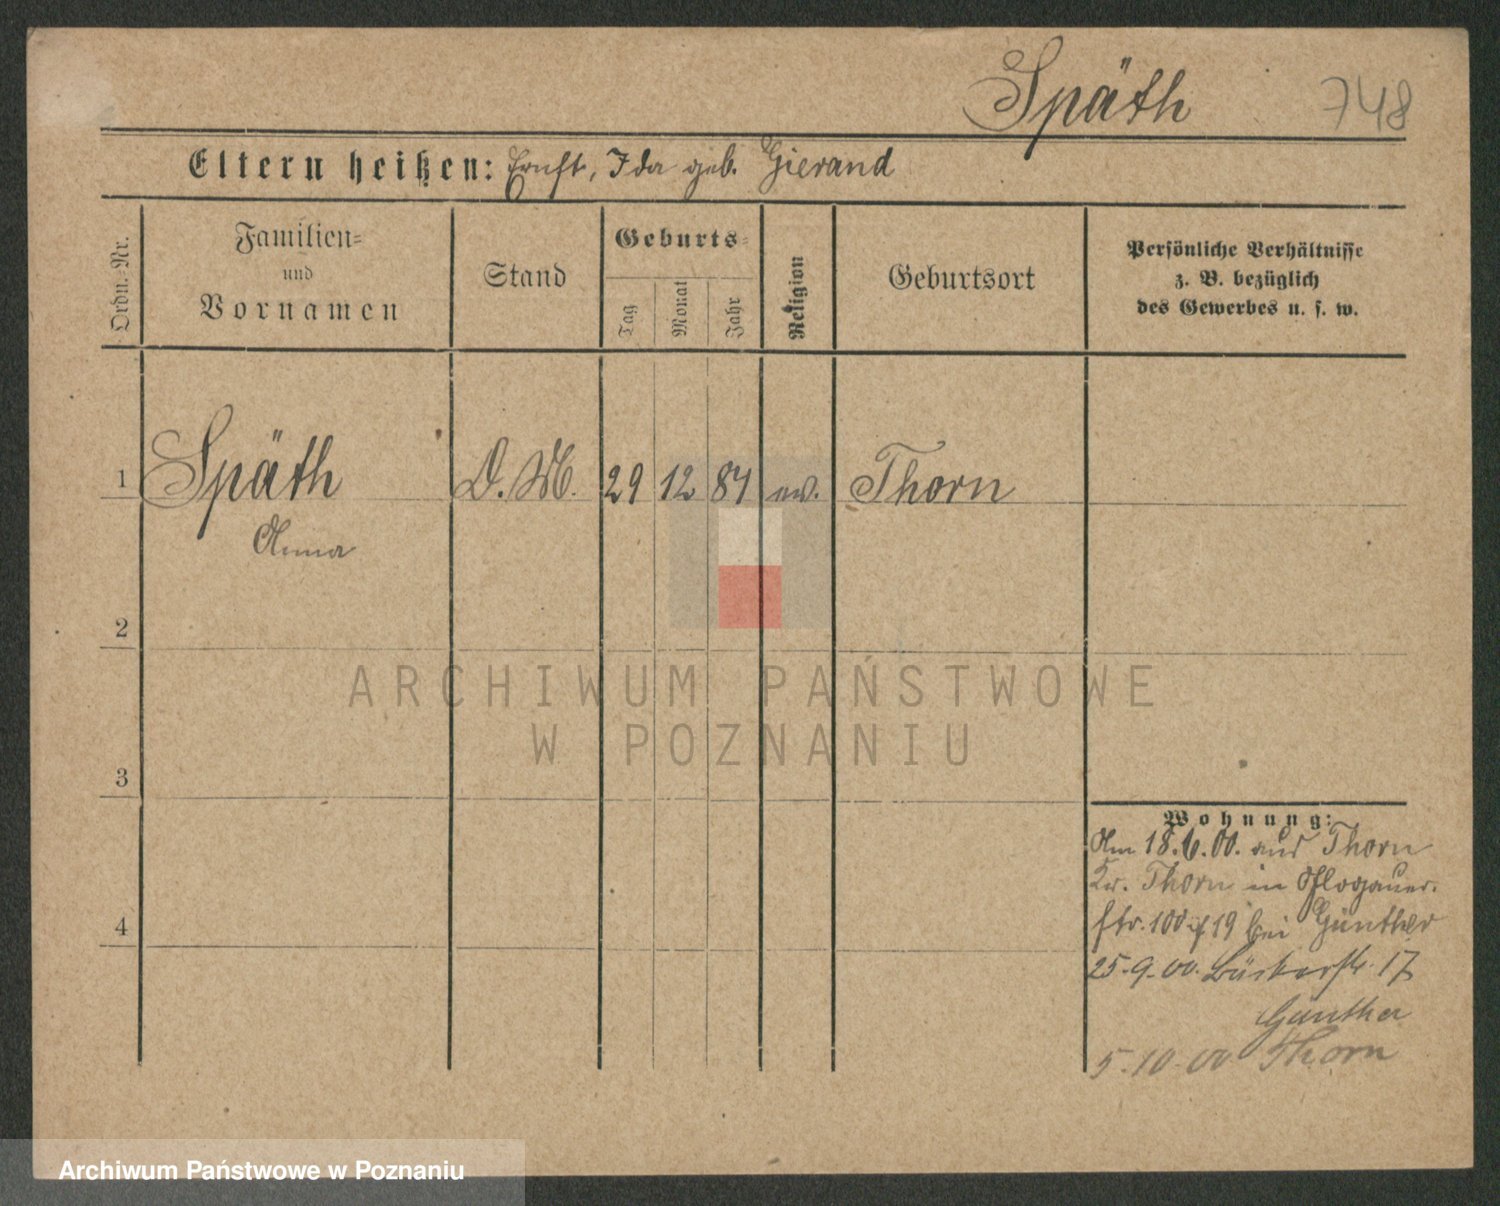 Späth 748
Eltern heißen: Ernst, Ida geb. Gierand
Ordn. Nr.
Familien-
und
Vornamen
Stand
Geburts-
Tag
Monat
Jahr
Religion
Geburtsort
Persönliche Verhältnisse
z. B. bezüglich
des Gewerbes u. s. w.
1 Späth D. M. 29 12 84 ev. Thorn
Anna
2
3
4
Wohnung:
Am 18.6.00. aus Thorn
Kr. Thorn in Glogauer.
str. 100 19 bei Günther
25.9.00. 17
Günther
5.10.00 Thorn
ARCHIWUM PAŃSTWOWE
W POZNANIU
Archiwum Państwowe w Poznaniu